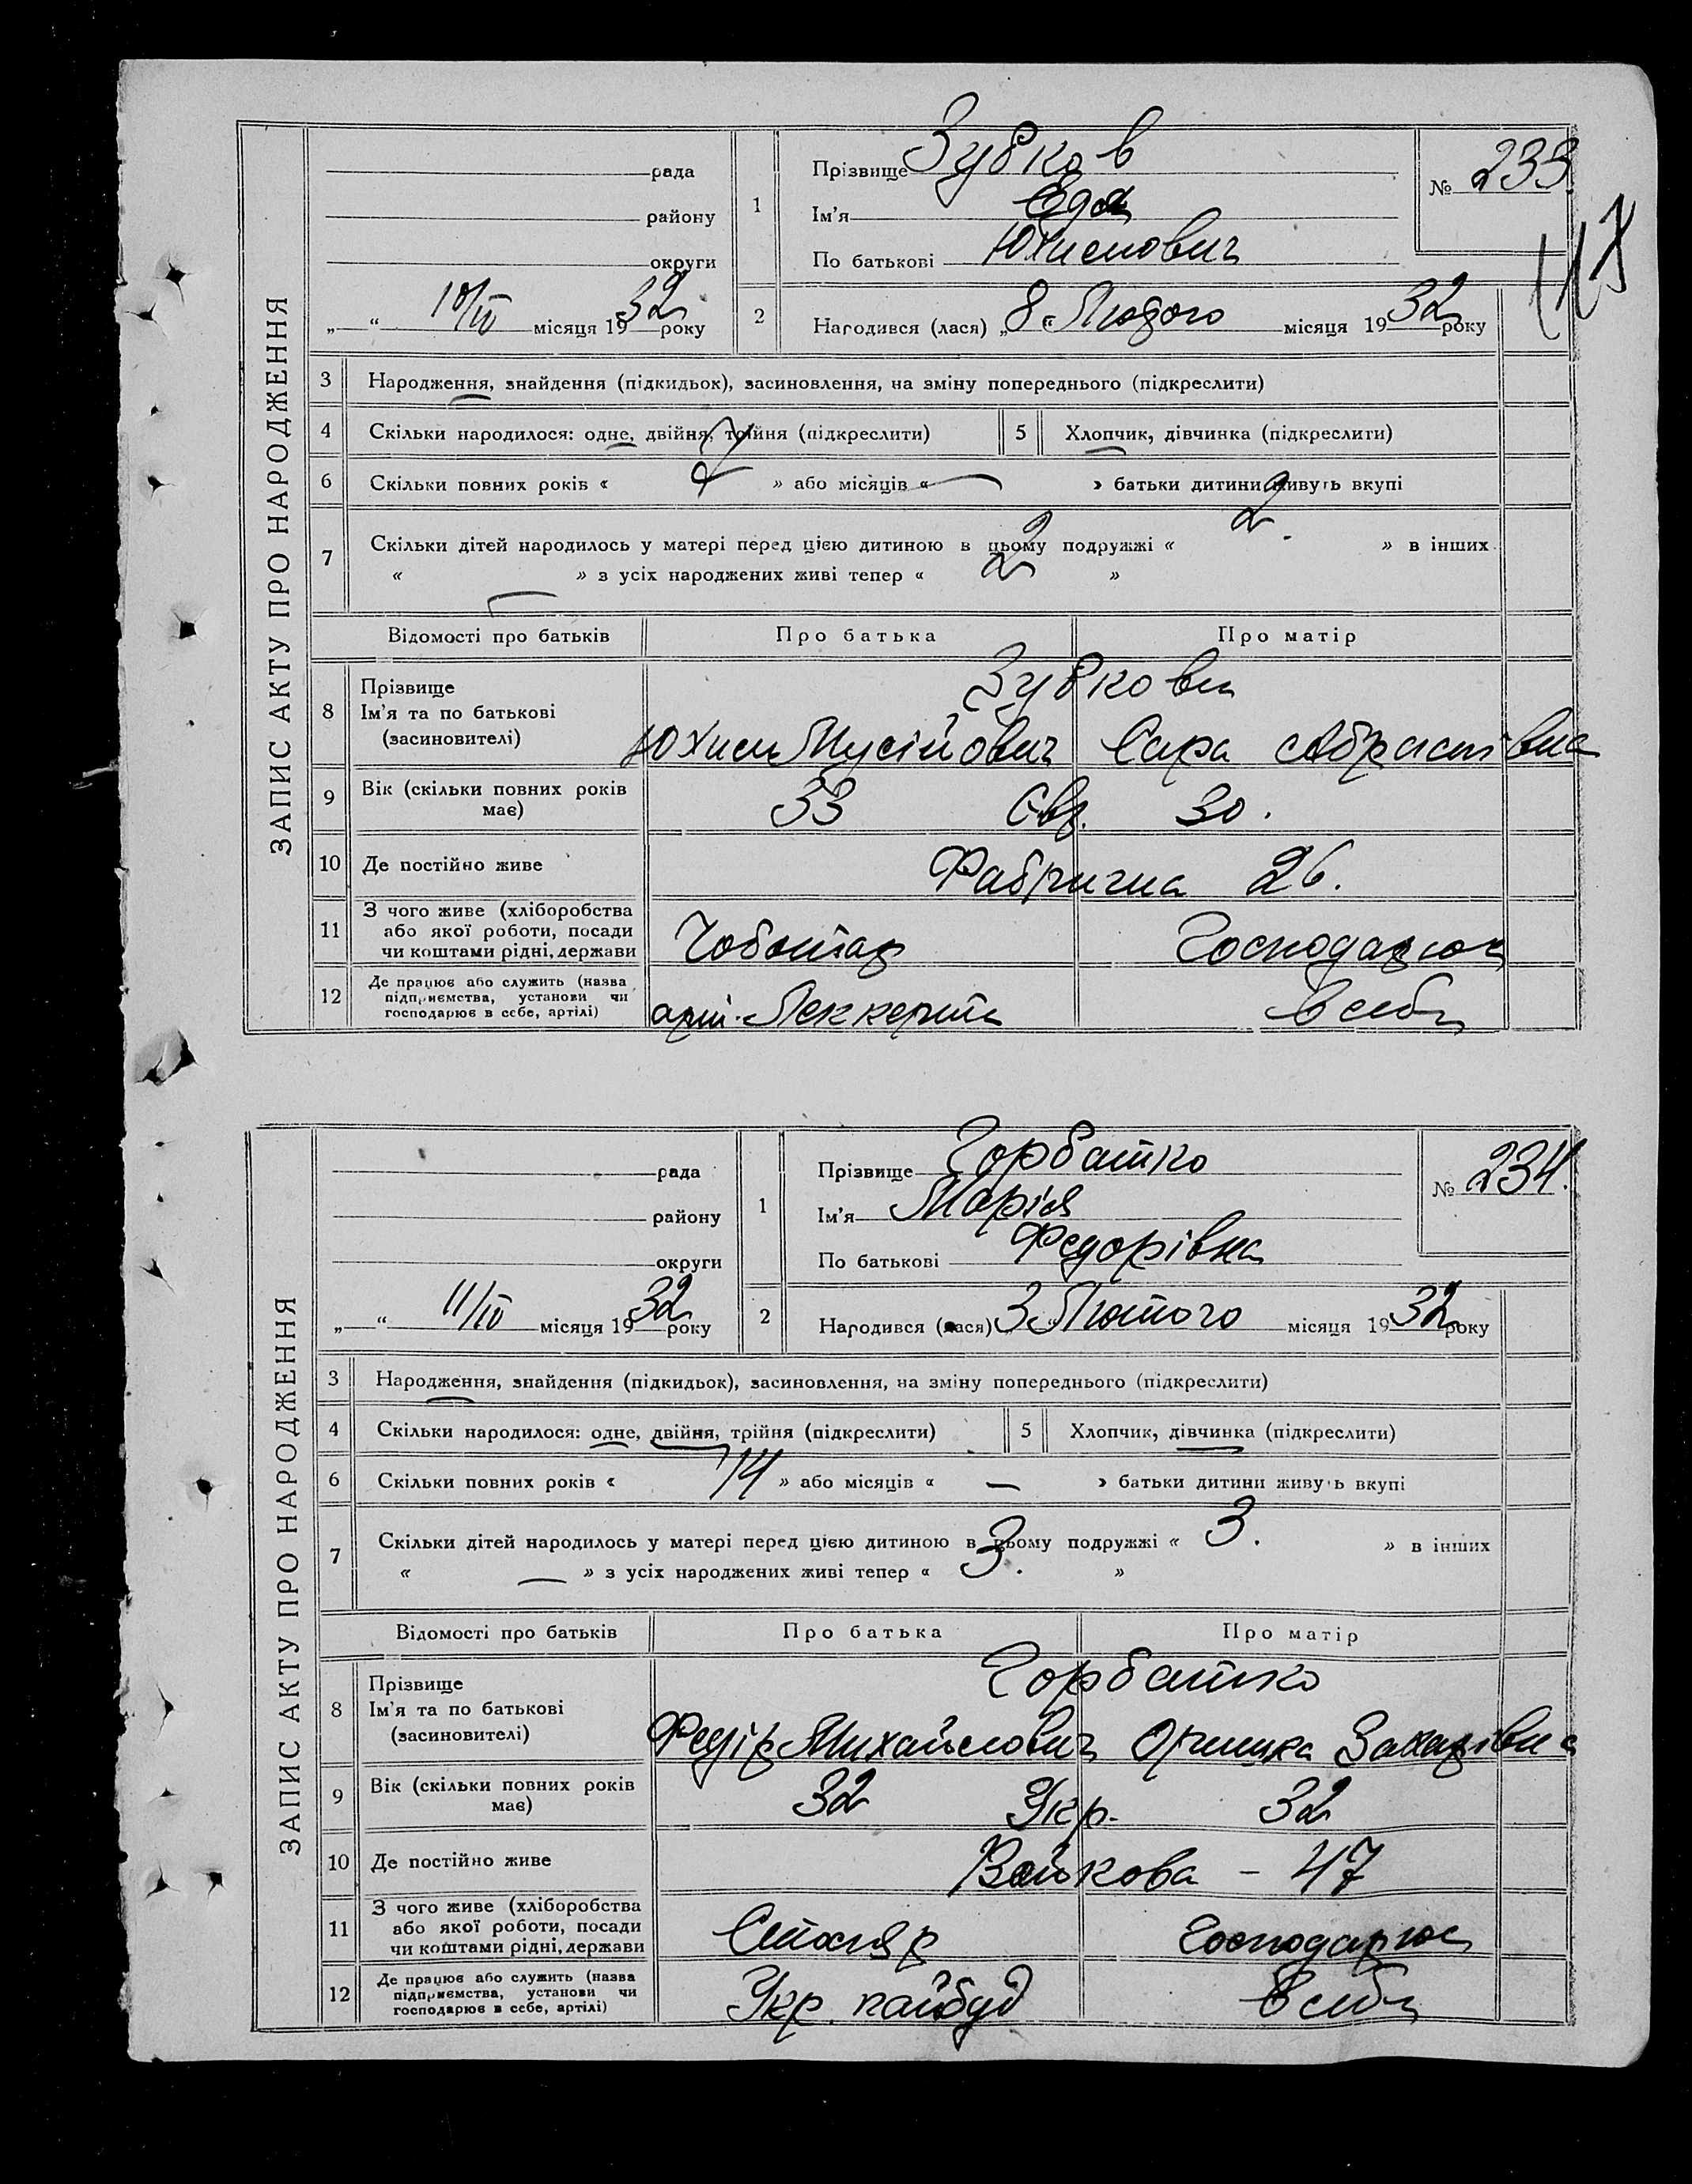 ЗАПИС АКТУ ПРО НАРОДЖЕННЯ
рада
району
округи
„ “ 10/II місяця 1932 року
1
Прізвище Зубков
Ім'я Еда
По батькові Юхимович
№ 233.
117
2
Народився (лася) „8“ Лютого місяця 1932 року
3 Народження, знайдення (підкидьок), засиновлення, на зміну попереднього (підкреслити)
4 Скільки народилося: одне, двійня, трійня (підкреслити)
5 Хлопчик, дівчинка (підкреслити)
6 Скільки повних років « » або місяців « — » батьки дитини живуть вкупі
7 Скільки дітей народилось у матері перед цією дитиною в цьому подружжі « 2. » в інших
« — » з усіх народжених живі тепер « 2 »
Відомості про батьків Про батька Про матір
8 Прізвище Ім'я та по батькові (засновителі)
Зубкови
Юхим Мусійович Сара Абрамівна
9 Вік (скільки повних років має) 33 Євр. 30.
10 Де постійно живе Фабрична 26.
11 З чого живе (хліборобства або якої роботи, посади чи коштами рідні, держави Чоботар Господарює
12 Де працює або служить (назва підприємства, установи чи господарює в себе, артілі) арт. Леккерта в себе
ЗАПИС АКТУ ПРО НАРОДЖЕННЯ
рада
району
округи
„ “ 11/II місяця 1932 року
1
Прізвище Горбатко
Ім'я Марія
По батькові Федорівна
№ 234.
2
Народився (лася) 3 Лютого місяця 1932 року
3 Народження, знайдення (підкидьок), засиновлення, на зміну попереднього (підкреслити)
4 Скільки народилося: одне, двійня, трійня (підкреслити)
5 Хлопчик, дівчинка (підкреслити)
6 Скільки повних років « 14 » або місяців « — » батьки дитини живуть вкупі
7 Скільки дітей народилось у матері перед цією дитиною в цьому подружжі « 3. » в інших
« — » з усіх народжених живі тепер « 3. »
Відомості про батьків Про батька Про матір
8 Прізвище Ім'я та по батькові (засиновителі)
Горбатко
Федір Михайлович Оришка Захарівна
9 Вік (скільки повних років має) 32 Укр. 32
10 Де постійно живе Войкова - 47
11 З чого живе (хліборобства або якої роботи, посади чи коштами рідні, держави Столяр Господарює
12 Де працює або служить (назва підприємства, установи чи господарює в себе, артілі) Укр. пайбуд в себе